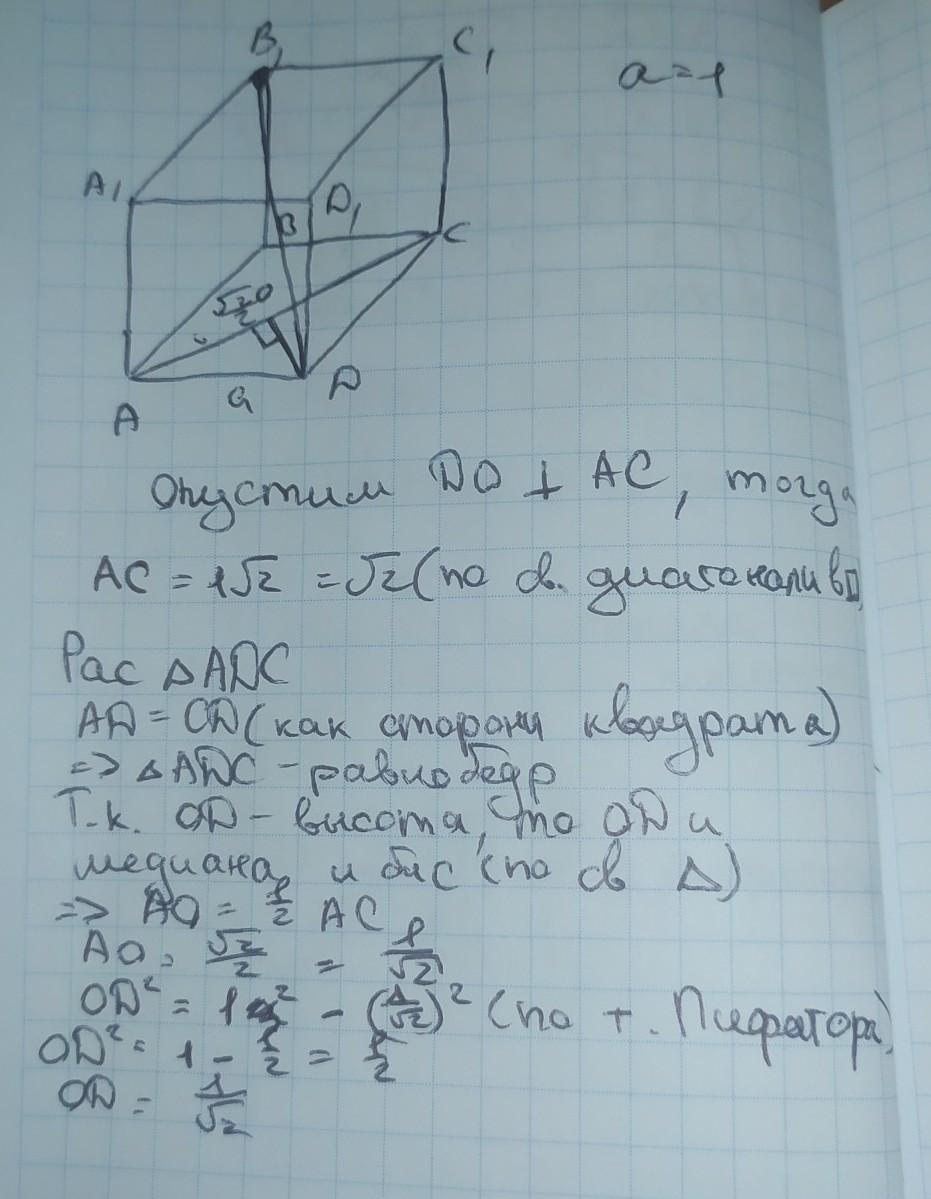 B₁
C₁
a = 1
A₁
D₁
B
C
√2/2
O
A
a
D
Опустим DO ⊥ AC, тогда
AC = 1√2 = √2 (по св. диагонали в □
Рас △ADC
AD = CD (как стороны квадрата)
=> △ADC - равнобедр
Т.к. OD - высота, то OD и
медиана и бис (по св △)
=> AO = 1/2 AC
AO = √2/2 = 1/√2
OD² = 1² - (1/√2)² (по т. Пифагора)
OD² = 1 - 1/2 = 1/2
OD = 1/√2